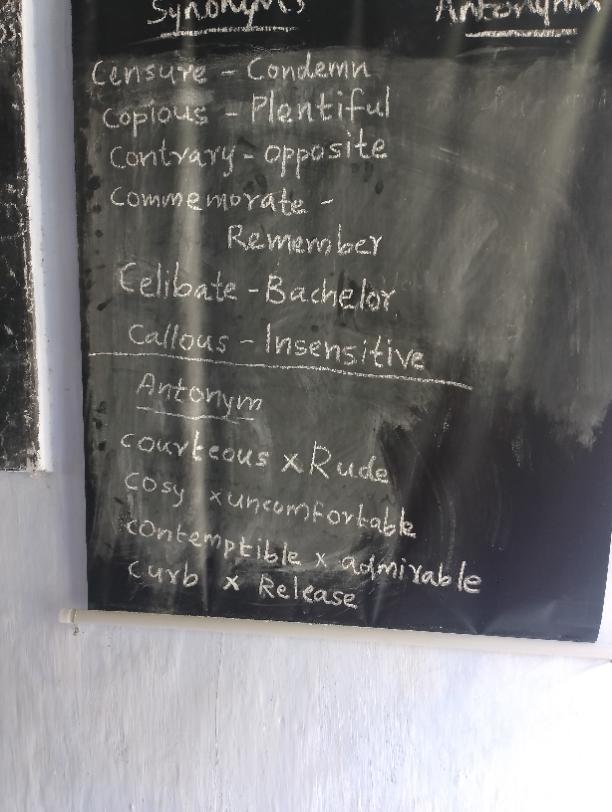 Synonyms
Antonym
Censure - Condemn
Copious - Plentiful
Contrary - opposite
Commemorate -
Remember
Celibate - Bachelor
Callous - Insensitive
Antonym
courteous x Rude
cosy x uncomfortable
contemptible x admirable
curb x Release